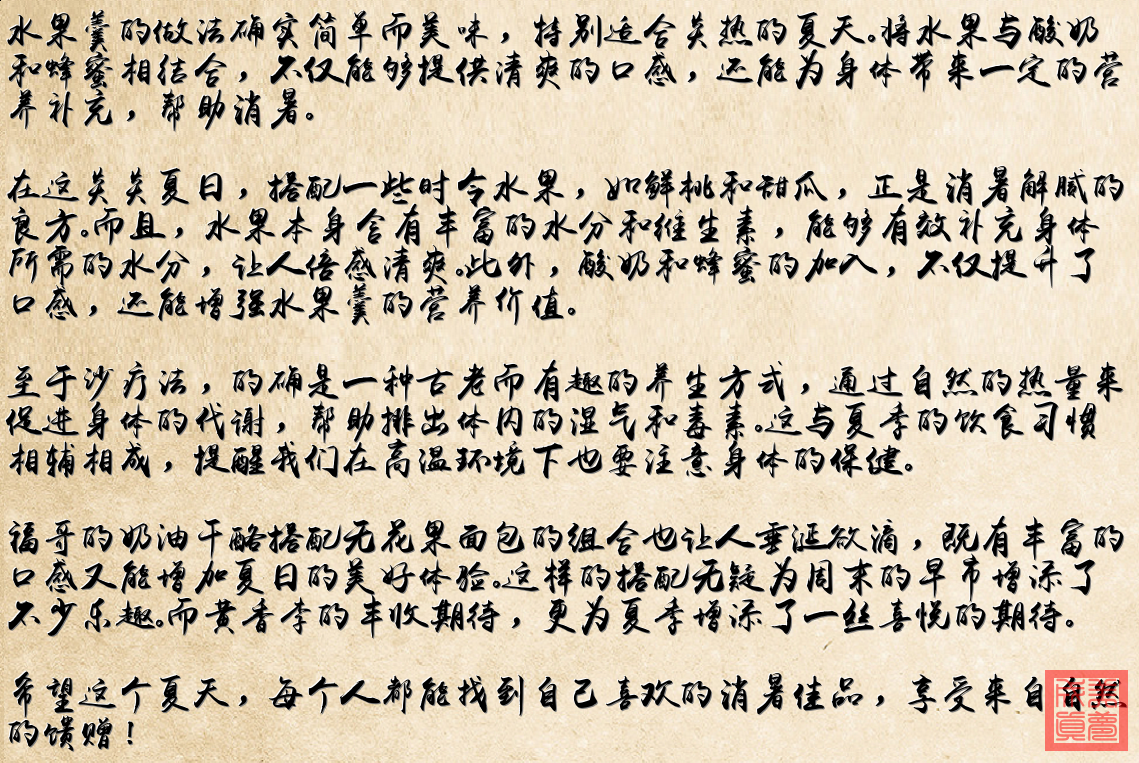 水果羹的做法确实简单而美味，特别适合炎热的夏天。将水果与酸奶
和蜂蜜相结合，不仅能够提供清爽的口感，还能为身体带来一定的营
养补充，帮助消暑。
在这炎炎夏日，搭配一些时令水果，如鲜桃和甜瓜，正是消暑解腻的
良方。而且，水果本身含有丰富的水分和维生素，能够有效补充身体
所需的水分，让人倍感清爽。此外，酸奶和蜂蜜的加入，不仅提升了
口感，还能增强水果羹的营养价值。
至于沙疗法，的确是一种古老而有趣的养生方式，通过自然的热量来
促进身体的代谢，帮助排出体内的湿气和毒素。这与夏季的饮食习惯
相辅相成，提醒我们在高温环境下也要注意身体的保健。
福哥的奶油干酪搭配无花果面包的组合也让人垂涎欲滴，既有丰富的
口感又能增加夏日的美好体验。这样的搭配无疑为周末的早市增添了
不少乐趣。而黄香李的丰收期待，更为夏季增添了一丝喜悦的期待。
希望这个夏天，每个人都能找到自己喜欢的消暑佳品，享受来自自然
的馈赠！